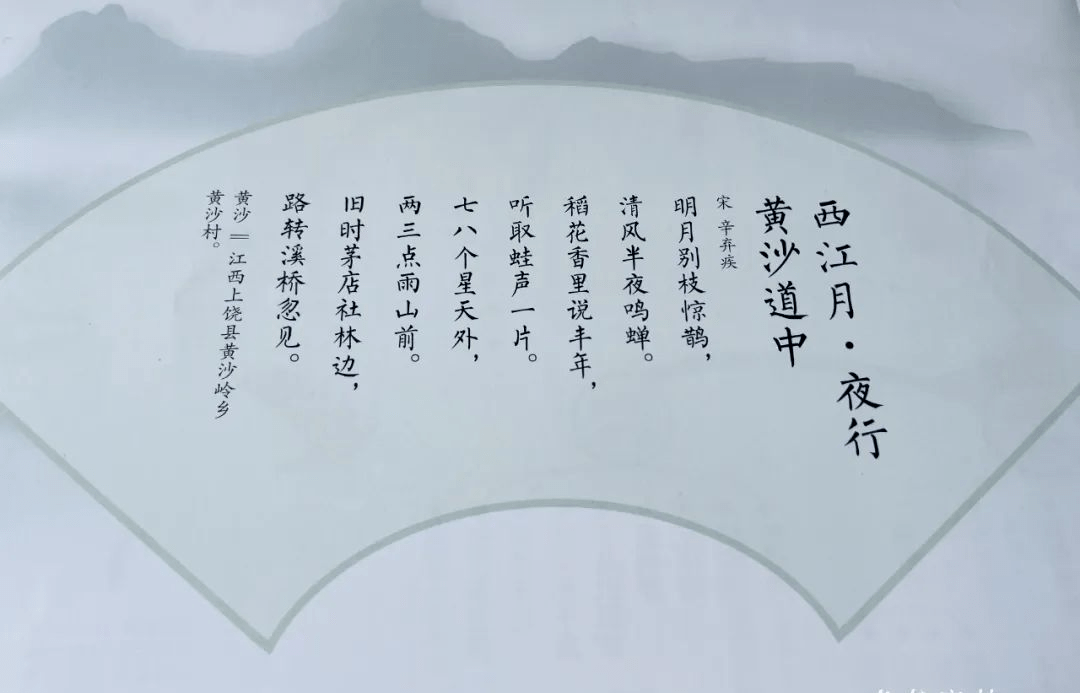 西江月·夜行
黄沙道中
宋 辛弃疾
明月别枝惊鹊，
清风半夜鸣蝉。
稻花香里说丰年，
听取蛙声一片。
七八个星天外，
两三点雨山前。
旧时茅店社林边，
路转溪桥忽见。
黄沙＝江西上饶县黄沙岭乡
黄沙村。